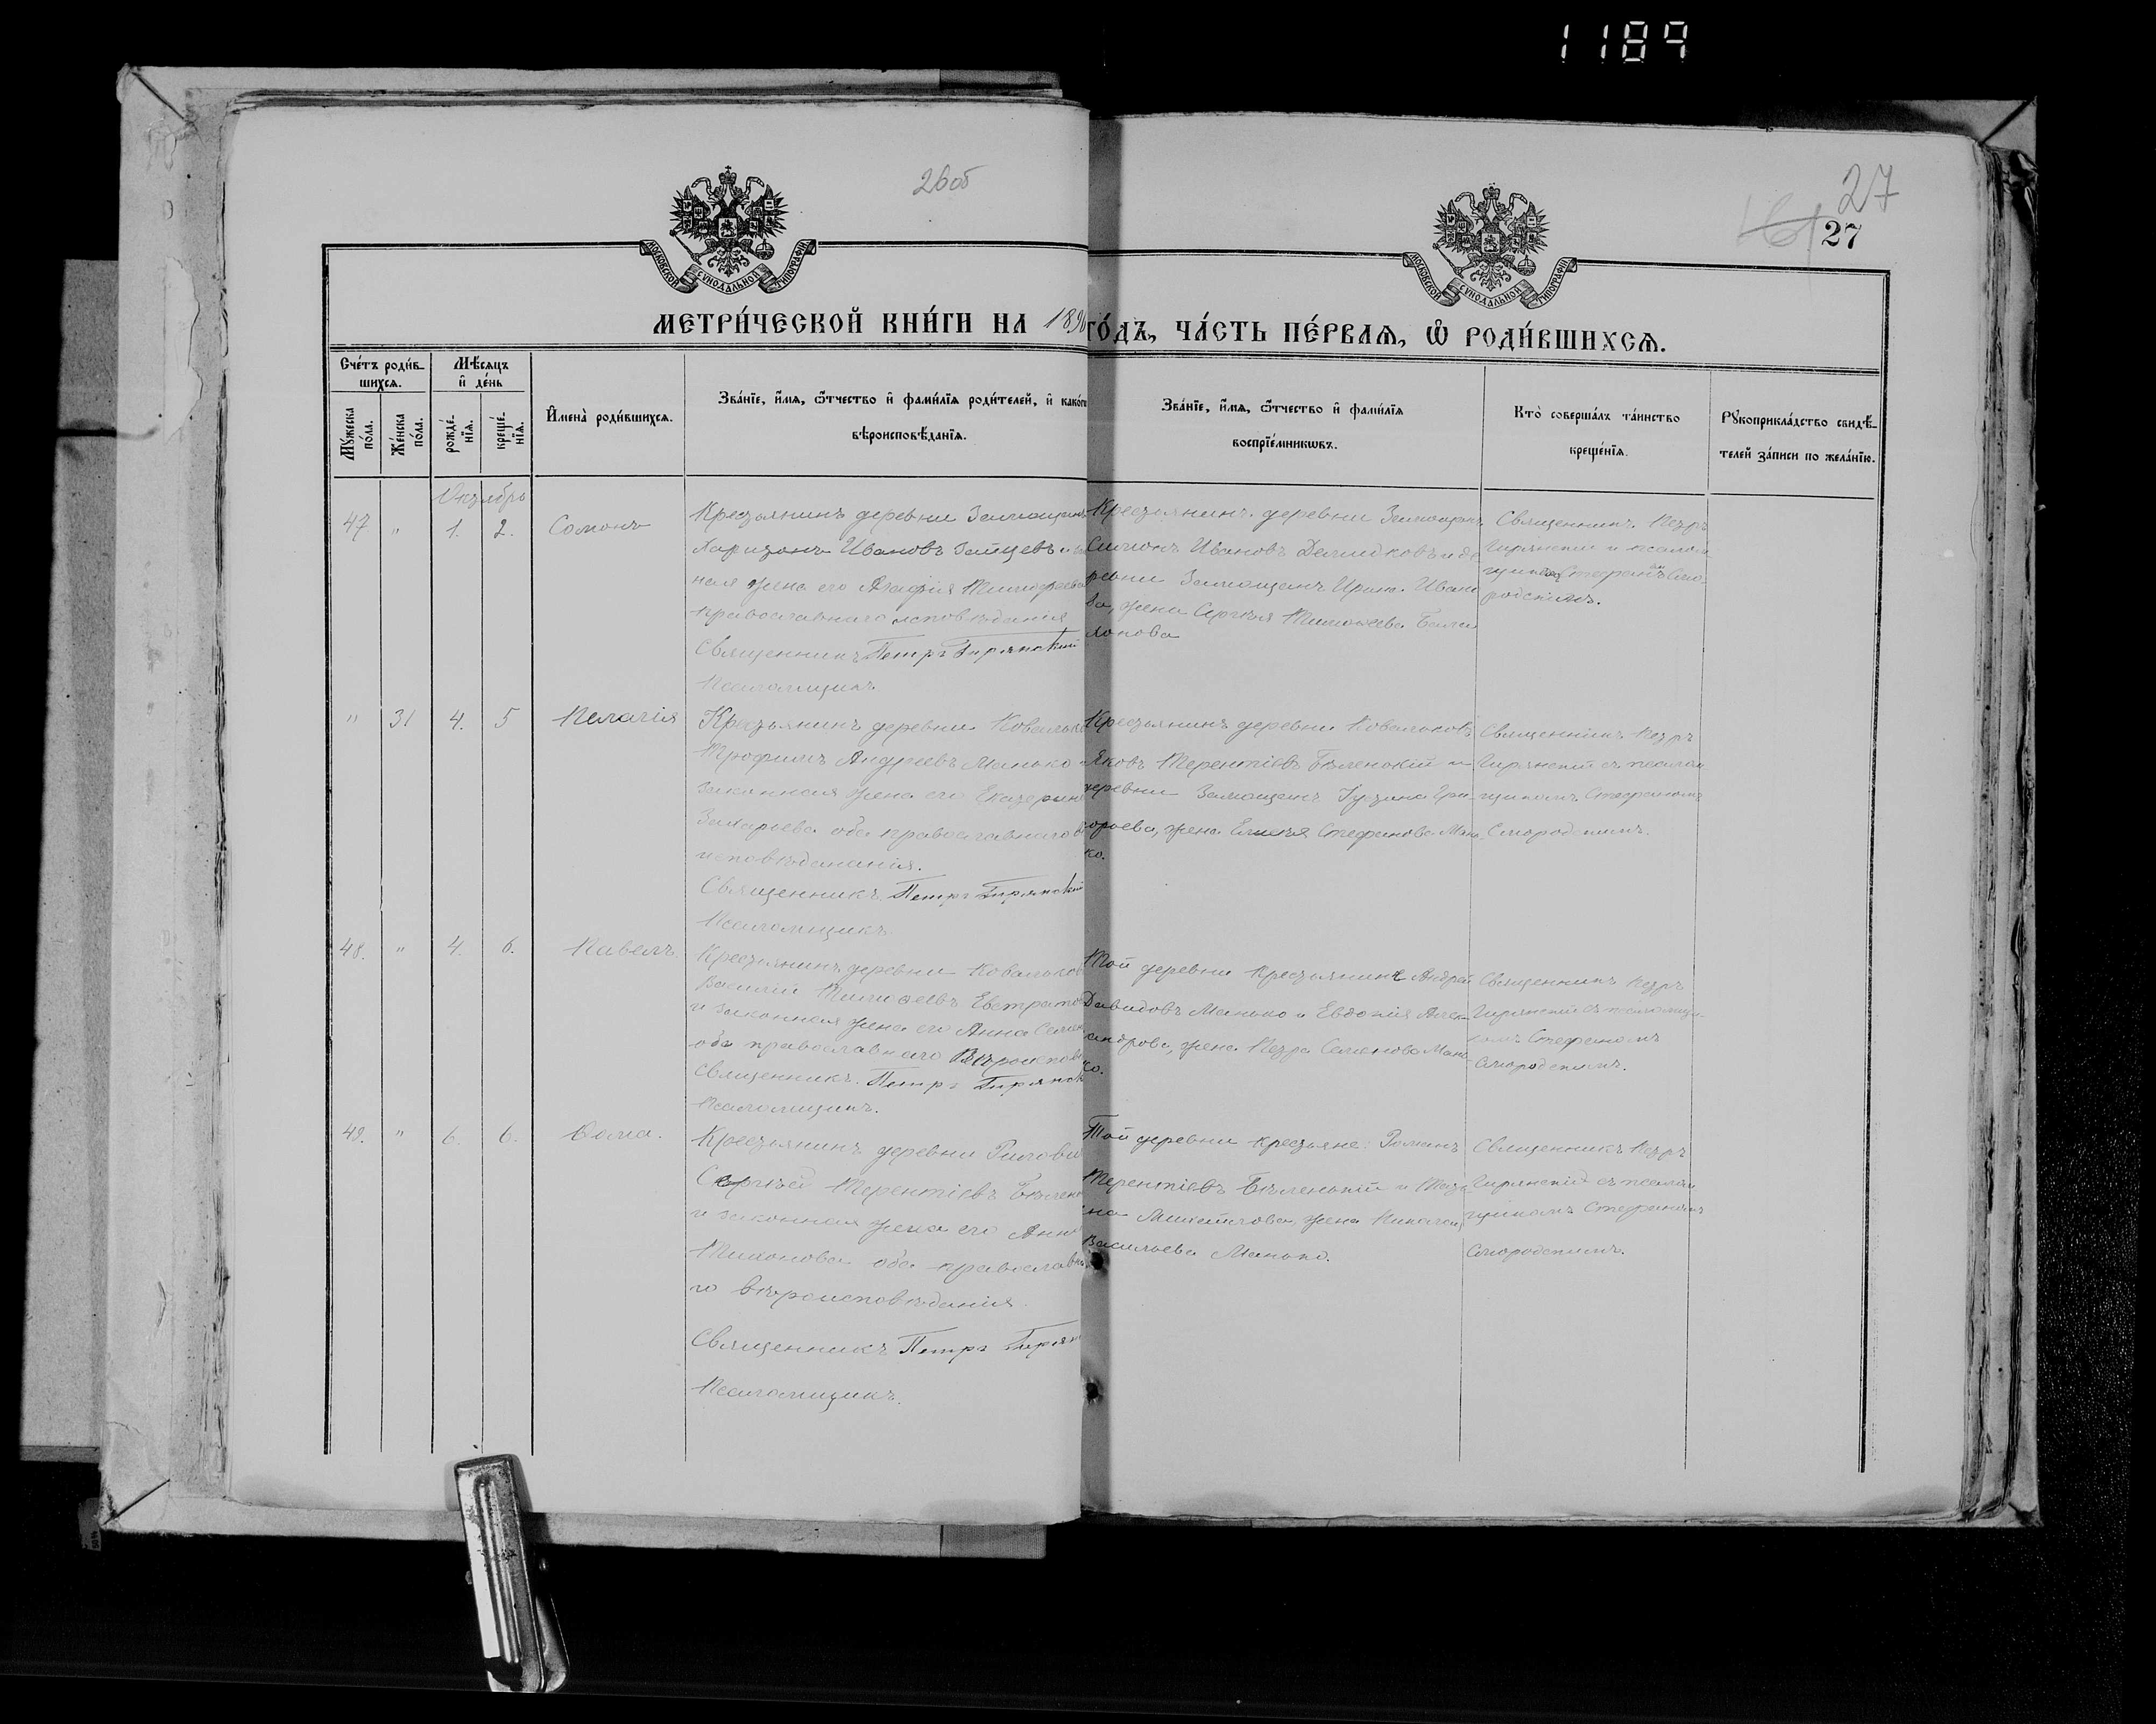 1189
26об
27
27
МОСКОВСКОЙ СѴНОДАЛЬНОЙ ТИПОГРАФІИ
МОСКОВСКОЙ СѴНОДАЛЬНОЙ ТИПОГРАФІИ
МЕТРИ́ЧЕСКОЙ КНИ́ГИ НА 1890
ГО́ДЪ, ЧА́СТЬ ПЕ́РВАЯ, Ѽ РОДИ́ВШИХСЯ.
Сче́тъ роди́в-
шихся.
Мꙋ́жеска по́ла.
Же́нска по́ла.
Мѣ́сяцъ
и҆ де́нь
рожде́-
нїя.
креще́-
нїя.
И҆мена̀ роди́вшихся.
Зва́нїе, и҆́мя, ѻ҆́тчество и҆ фами́лїя роди́телей, и҆ како́гѡ
вѣроисповѣ́данїя.
Зва́нїе, и҆́мя, ѻ҆́тчество и҆ фами́лїя
воспрїе́мникѡвъ.
Кто̀ соверша́лъ та́инство
креще́нїя.
Рꙋкоприкла́дство свидѣ́-
телей за́писи по жела́нїю.
Октябрь
47 " 1. 2.
Крестьянинъ деревни Замощанъ
Харитонъ Ивановъ Зайцевъ и
ная жена его Агафія Тимофеева
православнаго исповѣданія
Священникъ Петръ Гирянскій
Псаломщикъ
Крестьянинъ деревни Замощанъ
Симонъ Ивановъ Демидковъ и де
ревни Замощанъ Ирина Ивано
ва, жена Сергѣя Тимофеева
Священникъ Петръ
Гирянскій и псалом
щикъ Стефанъ Смо-
родскимъ.
" 31 4. 5 Пелагія
Крестьянинъ деревни Ковалько
Трофимъ Андреевъ Манько и
законная жена его Екатерина
Захарьева оба православнаго
исповѣданания.
Священникъ Петръ Гирянскій
Псаломщикъ
Крестьянинъ деревни Ковальковъ
Яковъ Терентіевъ Бѣленькій и
деревни Замощанъ Іустина Гри-
орьева, жена Елисѣя Стефанова Мань
ко.
Священникъ Петръ
Гирянскій съ псалом
щикомъ Стефаномъ
Смородскимъ.
48. " 4. 6. Павелъ.
Крестьянинъ деревни Ковальковъ
Василій Тимофеевъ Евстратов
и законная жена его Анна Семен
оба православнаго Вѣроисповѣ
Священникъ. Петръ Гирянск
Псаломщикъ.
Той деревни крестьянинъ Андрей
Давидовъ Манько и Евдокія Алек-
андрова, жена Петра Семенова Мань
ко.
Священникъ Петръ
Гирянскій съ псаломщи-
комъ Стефаномъ
Смородскимъ.
49. " 6. 6. Ѳома.
Крестьянинъ деревни
Сергѣй Терентіевъ Бѣлень
и законная жена его Анн
Тихонова оба православна
го вѣроисповѣданія.
Священникъ Петръ Гирян
Псаломщикъ.
Той деревни крестьяне: Романъ
Терентіевъ Бѣленькій и Татья
на Михайлова, жена Николая
Васильева Манько.
Священникъ Петръ
Гирянскій съ псалом
щикомъ Стефаномъ
Смородскимъ.